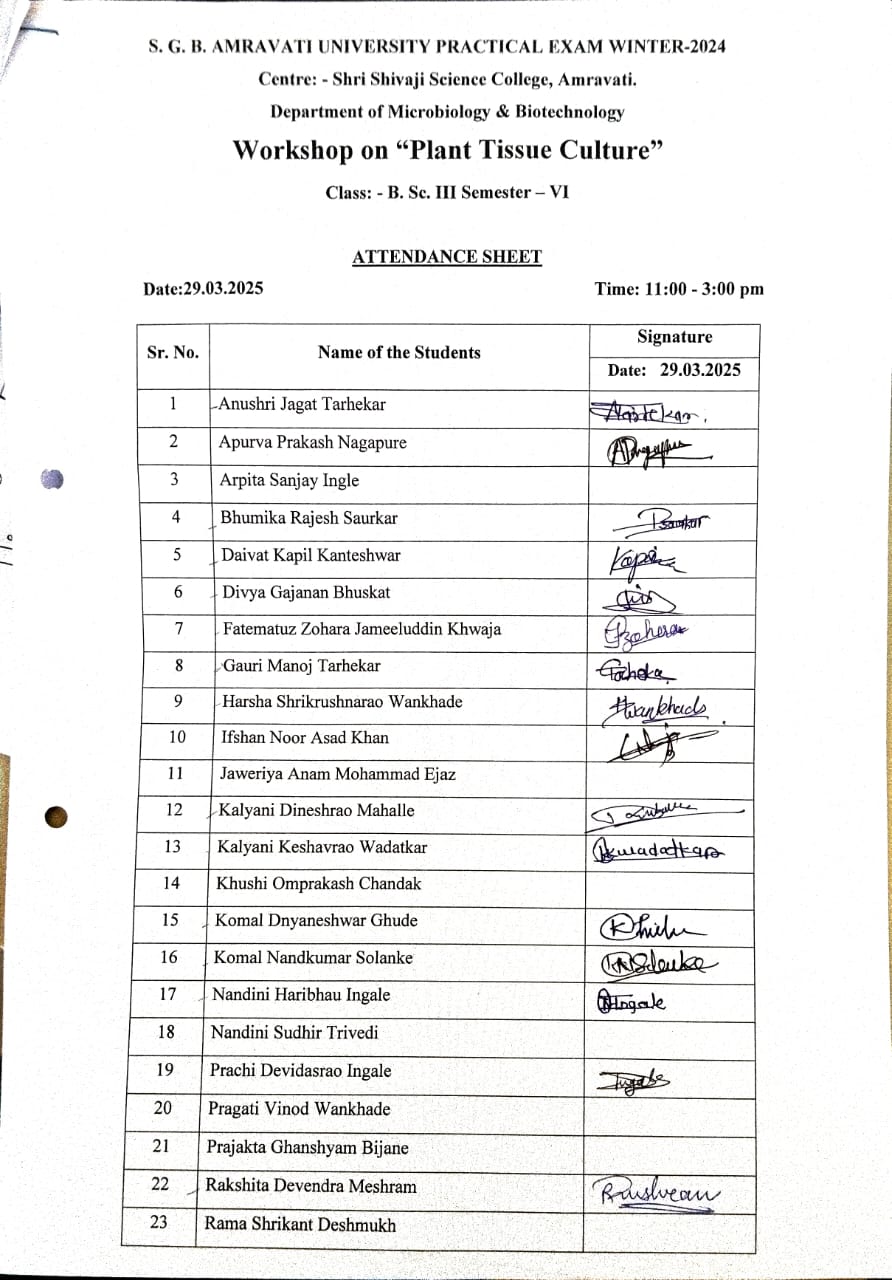 S. G. B. AMRAVATI UNIVERSITY PRACTICAL EXAM WINTER-2024
Centre: - Shri Shivaji Science College, Amravati.
Department of Microbiology & Biotechnology
Workshop on “Plant Tissue Culture”
Class: - B. Sc. III Semester – VI
ATTENDANCE SHEET
Date:29.03.2025 Time: 11:00 - 3:00 pm
Sr. No. Name of the Students Signature
Date: 29.03.2025
1 Anushri Jagat Tarhekar
2 Apurva Prakash Nagapure
3 Arpita Sanjay Ingle
4 Bhumika Rajesh Saurkar
5 Daivat Kapil Kanteshwar
6 Divya Gajanan Bhuskat
7 Fatematuz Zohara Jameeluddin Khwaja
8 Gauri Manoj Tarhekar
9 Harsha Shrikrushnarao Wankhade
10 Ifshan Noor Asad Khan
11 Jaweriya Anam Mohammad Ejaz
12 Kalyani Dineshrao Mahalle
13 Kalyani Keshavrao Wadatkar
14 Khushi Omprakash Chandak
15 Komal Dnyaneshwar Ghude
16 Komal Nandkumar Solanke
17 Nandini Haribhau Ingale NIngale
18 Nandini Sudhir Trivedi
19 Prachi Devidasrao Ingale
20 Pragati Vinod Wankhade
21 Prajakta Ghanshyam Bijane
22 Rakshita Devendra Meshram
23 Rama Shrikant Deshmukh